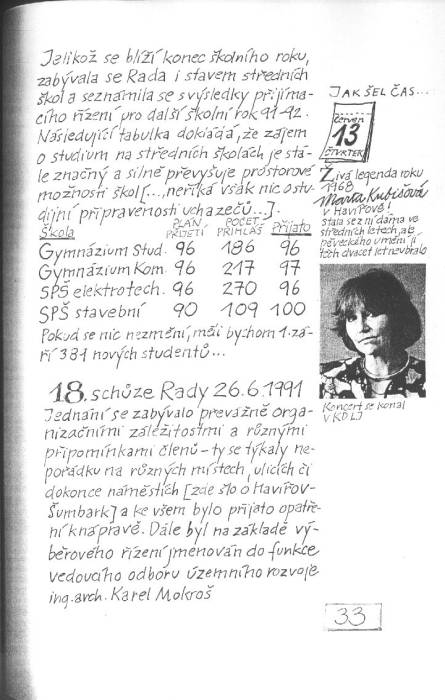 Jelikož se blíží konec školního roku,
zabývala se Rada i stavem středních
škol a seznámila se s výsledky přijíma-
cího řízení pro další školní rok 91-92.
Následující tabulka dokládá, že zájem
o studium na středních školách je stá-
le značný a silně převyšuje prostorové
možnosti škol [..., neříká však nic o stu-
dijní připravenosti uchazečů...].
Škola PLÁN PŘIJETÍ POČET PŘIHLÁŠ. Přijato
Gymnázium Stud. 96 186 96
Gymnázium Kom. 96 217 97
SPŠ elektrotech. 96 270 96
SPŠ stavební 90 109 100
Pokud se nic nezmění, měli bychom 1. zá-
ří 381 nových studentů...
18. schůze Rady 26.6.1991
Jednání se zabývalo převážně orga-
nizačními záležitostmi a různými
připomínkami členů - ty se týkaly ne-
pořádku na různých místech, ulicích či
dokonce náměstích [zde šlo o Havířov-
Šumbark] a ke všem bylo přijato opatře-
ní k nápravě. Dále byl na základě vý-
běrového řízení jmenován do funkce
vedoucího odboru územního rozvoje
ing. arch. Karel Mokroš
JAK ŠEL ČAS...
červen
13
ČTVRTEK
Živá legenda roku
1968
Marta Kubišová
v Havířově!
Stála se z ní dáma ve
středních letech, ale
pěveckého umění jí
těch dvacet let nevbralo
Koncert se konal
V KDLJ
33